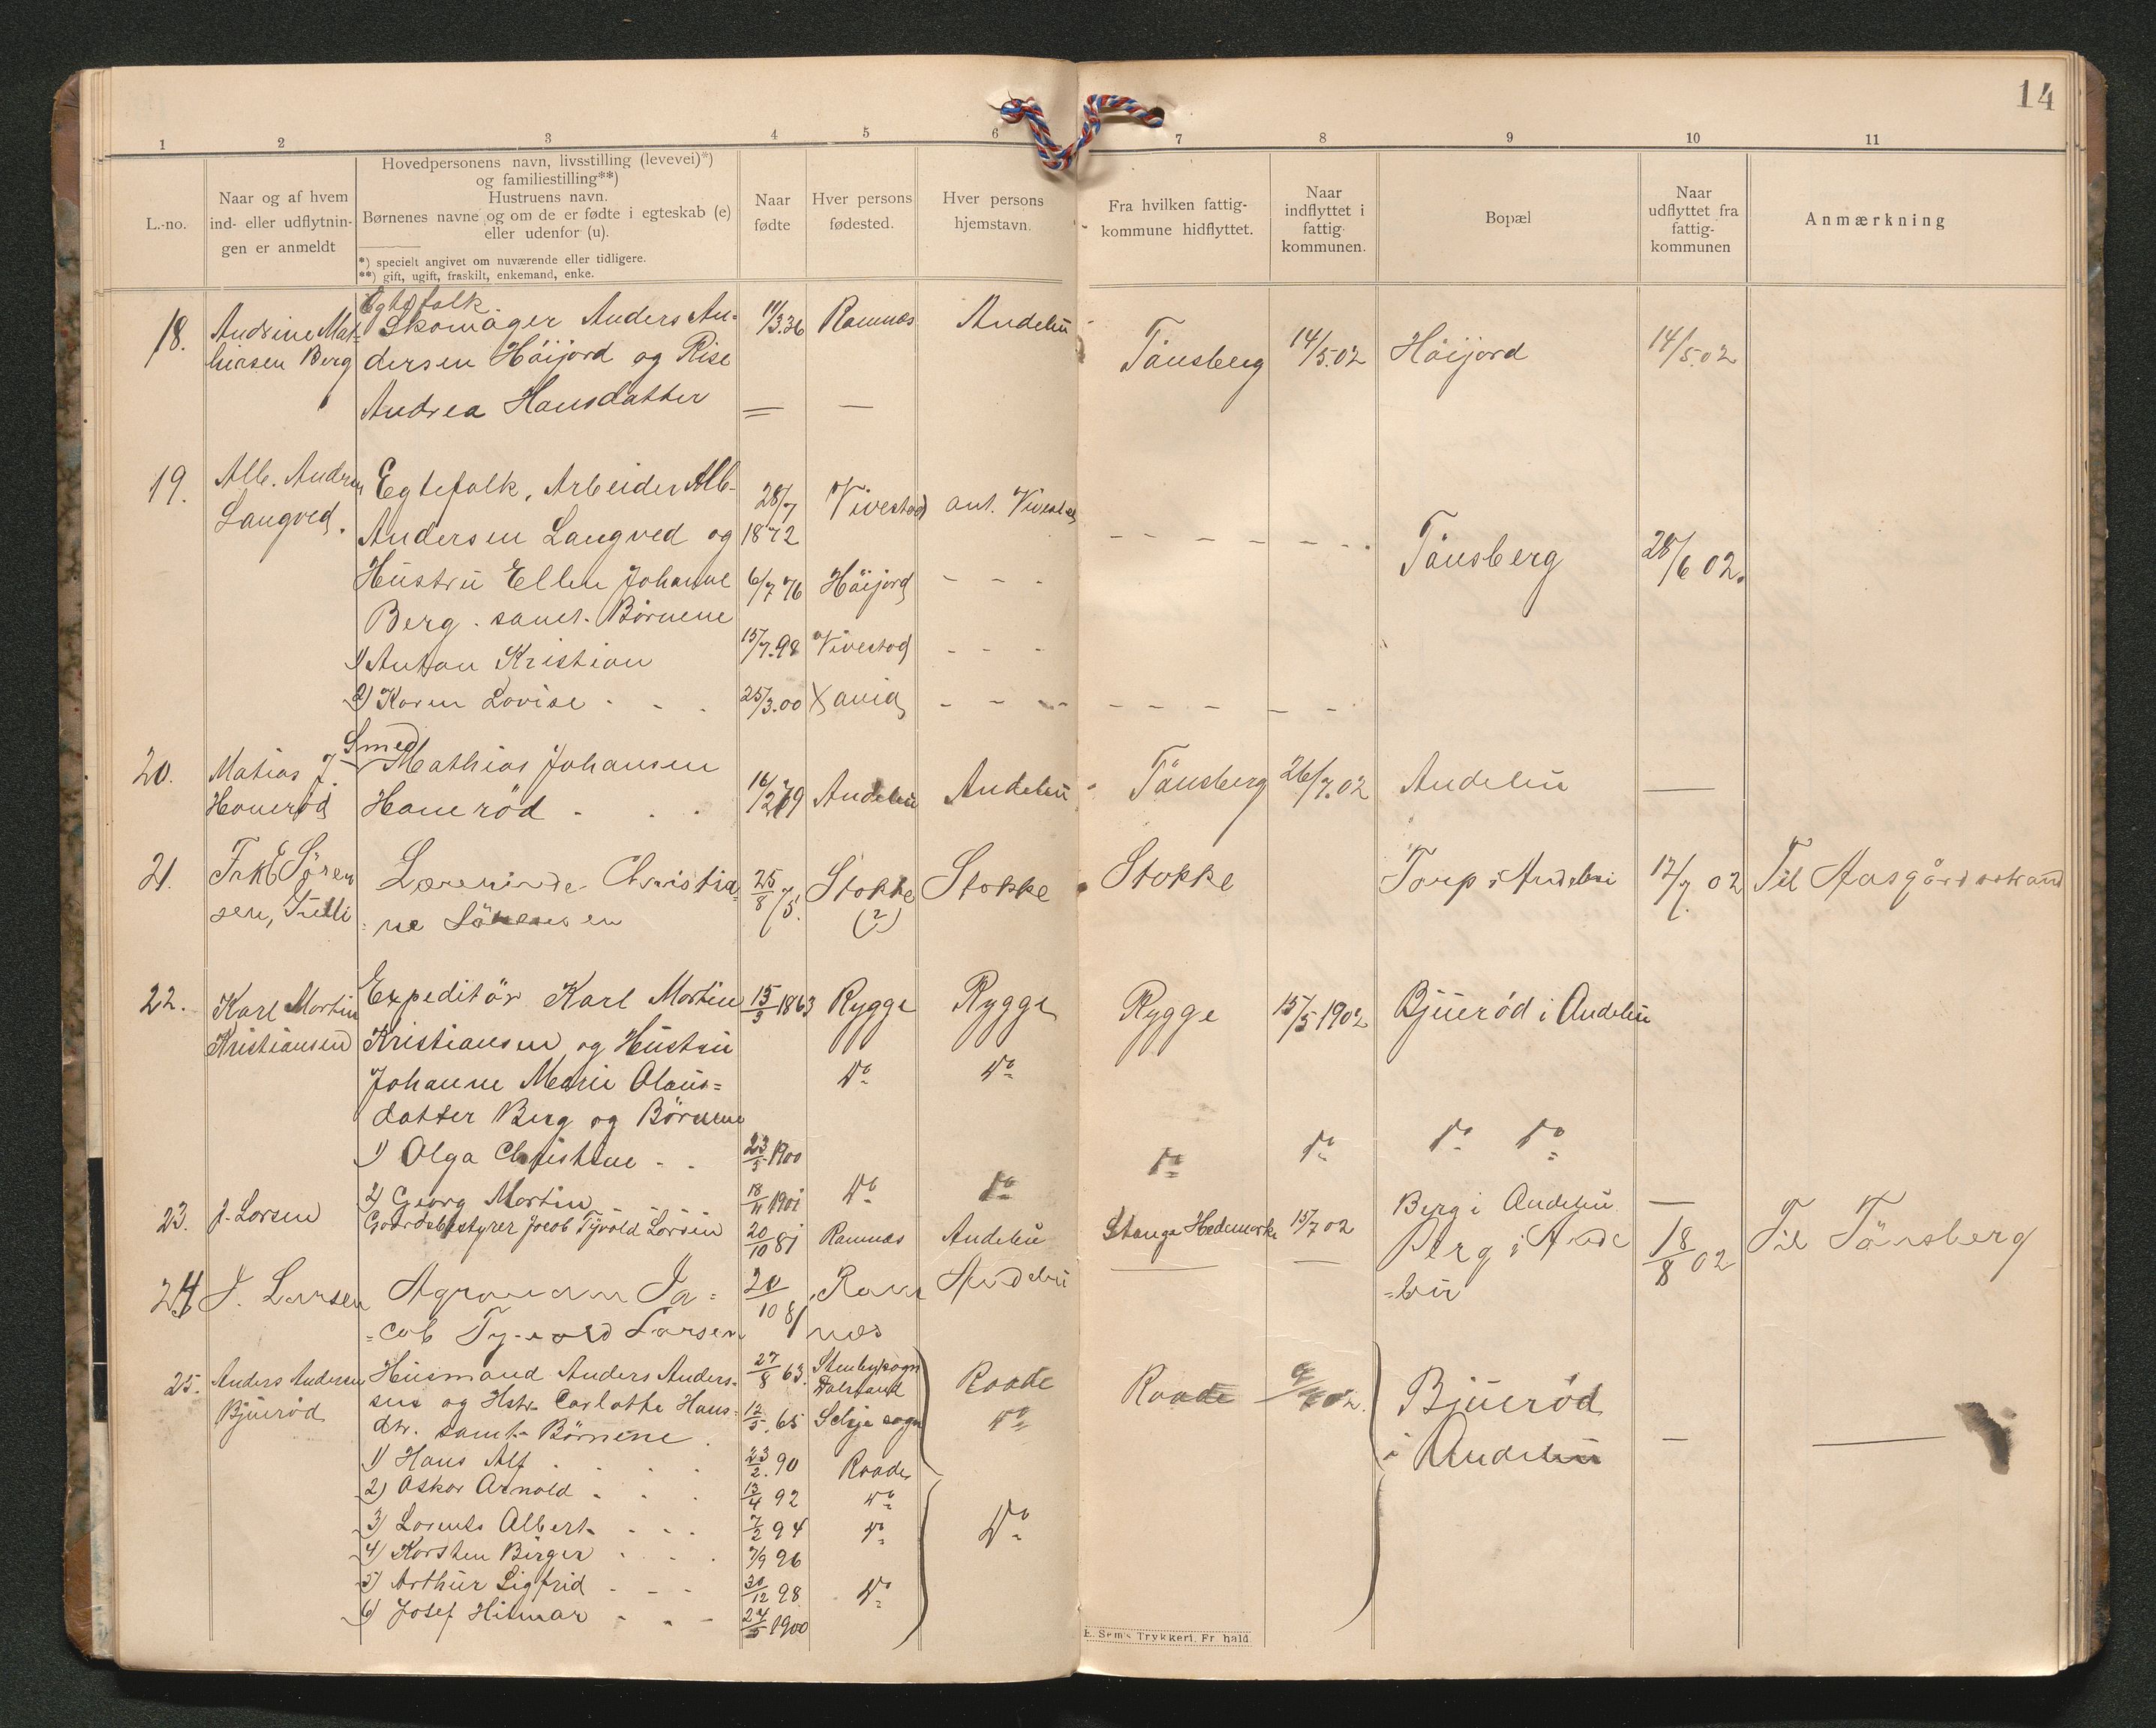 14
1 2 3 4 5 6 7 8 9 10 11
L.-no.
Naar og af hvem
ind- eller udflytnin-
gen er anmeldt
Hovedpersonens navn, livsstilling (levevei)*)
og familiestilling**)
Hustruens navn.
Børnenes navne og om de er fødte i egteskab (e)
eller udenfor (u).
*) specielt angivet om nuværende eller tidligere.
**) gift, ugift, fraskilt, enkemand, enke.
Naar
fødte
Hver persons
fødested.
Hver persons
hjemstavn.
Fra hvilken fattig-
kommune hidflyttet.
Naar
indflyttet i
fattig-
kommunen.
Bopæl
Naar
udflyttet fra
fattig-
kommunen
Anmærkning
Egtefolk
18. Andrine Mat- Skomager Anders An- 11/3.36 Ramnæs Andebu Tönsberg 14/5.02 Höijord 14/5.02
hiasen Berg dersen Höijord og Rise
Andrea Hansdatter = —
19. Alb. Andersen Egtefolk, Arbeider Alb. 28/7 Vivestad ant. Vivestad
Langved. Andersen Langved og 1872 - - - - - - Tönsberg 28/6 02.
Hustru Ellen Johanne 6/7 76 Höijord - - -
Berg. samt. Börnene
1) Anton Kristian 15/7.98 Vivestad - - -
2) Karen Lovise - - . 25/3.00 - - - - - - - - -
Smed
20. Matias J. Mathias Johansen
Hanerød Hanerød - . . 16/2 79 Andebu Andebu Tönsberg 26/7.02 Andebu —
21. Frk E Sören Lærerinde Christia- 25/8 75. Stokke Stokke Stokke Torp i Andebu 12/7 02 Til Aasgårdsstrand
sen, Tutli -ne Sörensen (?)
22. Karl Martin Expeditör Karl Martin 15/3 1863 Rygge Rygge Rygge 15/5 1902 Bjuerød i Andebu
Kristiansen Kristiansen og Hustru
Johanne Marie Olaus= do do
datter Berg og Börnene
1) Olga Christine - . 23/5 1900 do do do do
2) Georg Martin 18/11 1901 do do
23. J. Larsen Gaardsbestyrer Jacob Tyvold Larsen 20/10 81 Ramnæs Andebu Stange Hedemarke 15/7 02 Berg i Andebu —
24 J. Larsen Agronom Ja= 20/10 81 Ram Andebu — — Berg i Ande 18/8 02 Til Tönsberg
=cob Tyvold Larsen næs =bu
25. Anders Andersen Husmand Anders Anders- 27/8 63. Stenbysogn Raade Raade 02. Bjuerød
Bjuerød sen og Hstr. Carlotte Hans= 12/5. 65 sogn do i Andebu — —
dtr. samt Börnene.
1) Hans Alf . . . . 23/2. 90 Raade
2) Oskar Arnold - . . 13/4 92 do
3) Lorents Albert - . - . 7/2 94 do do
4) Karsten Birger . . . 7/9 96
5) Arthur Sigfrid - - - 30/12 98 do
6) Josef Hilmar - - - 24/5 1900
E. Sem's Trykkeri, Fr.hald